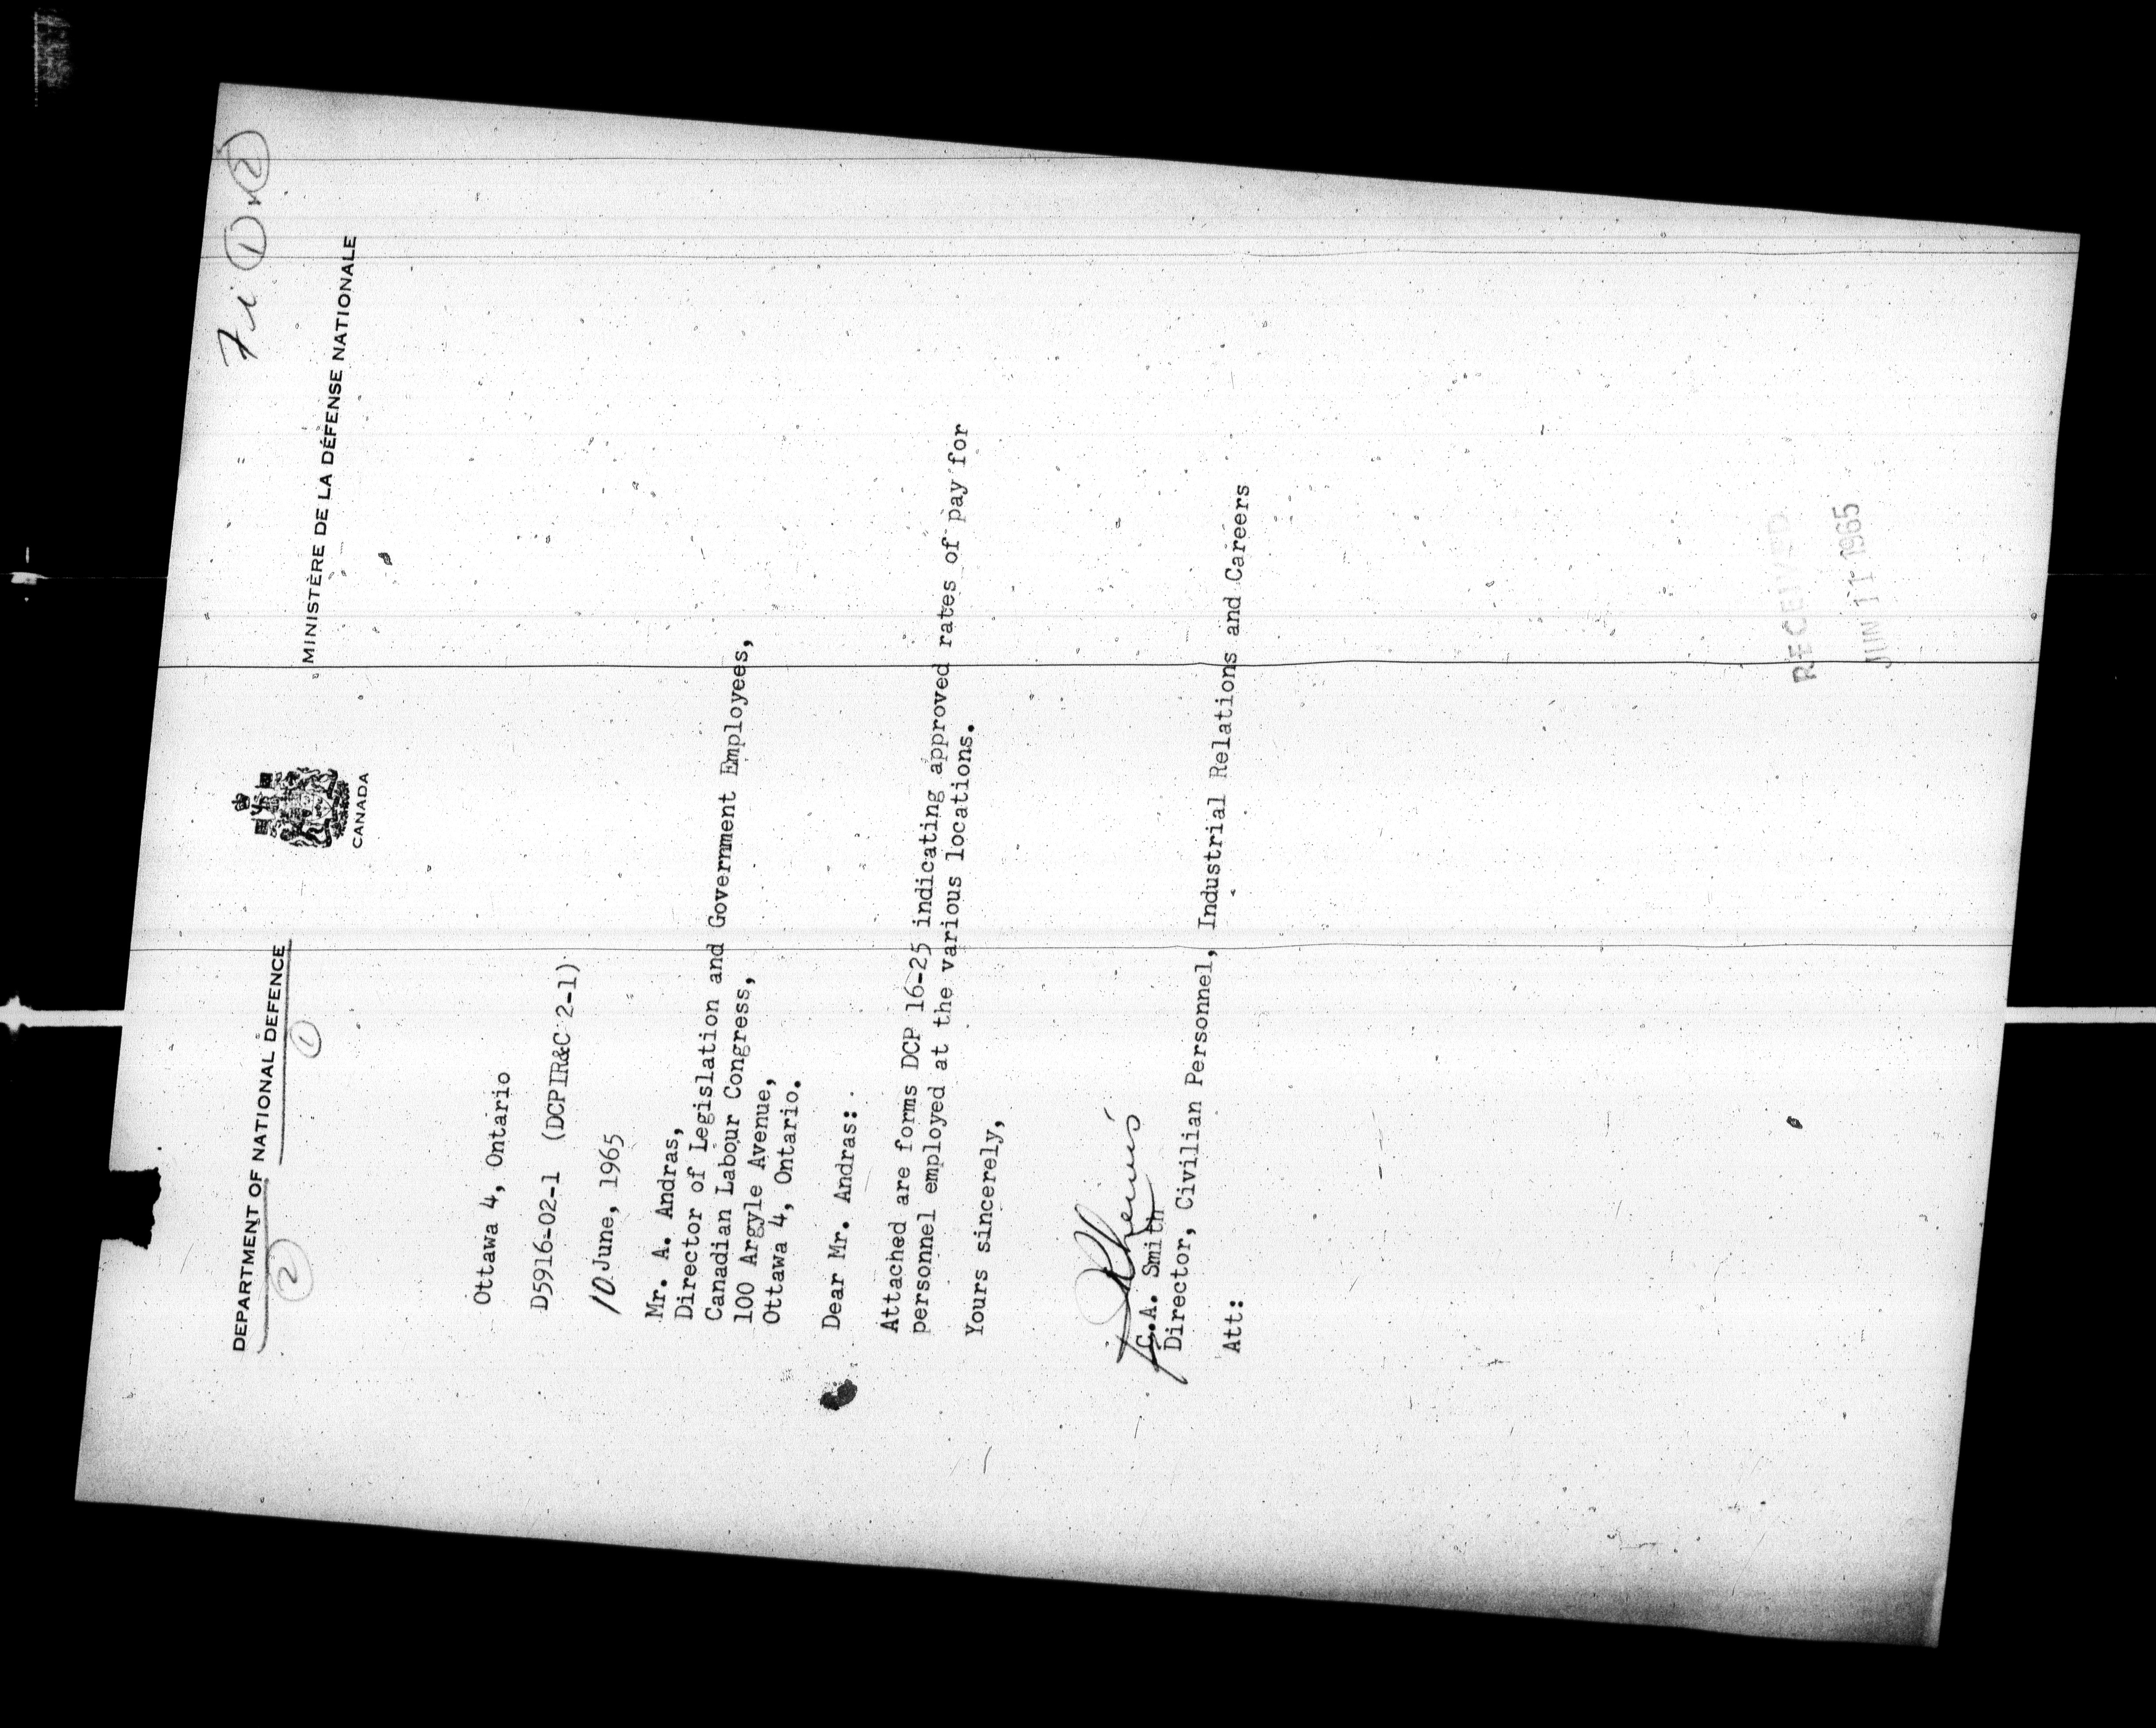 7i ① & ②
DEPARTMENT OF NATIONAL DEFENCE
② ①
CANADA
MINISTÈRE DE LA DÉFENSE NATIONALE
Ottawa 4, Ontario
D5916-02-1 (DCPIR&C 2-1)
10 June, 1965
Mr. A. Andras,
Director of Legislation and Government Employees,
Canadian Labour Congress,
100 Argyle Avenue,
Ottawa 4, Ontario.
Dear Mr. Andras:
Attached are forms DCP 16-25 indicating approved rates of pay for
personnel employed at the various locations.
Yours sincerely,
C.A. Smith
Director, Civilian Personnel, Industrial Relations and Careers
Att:
RECEIVED
JUN 11 1965